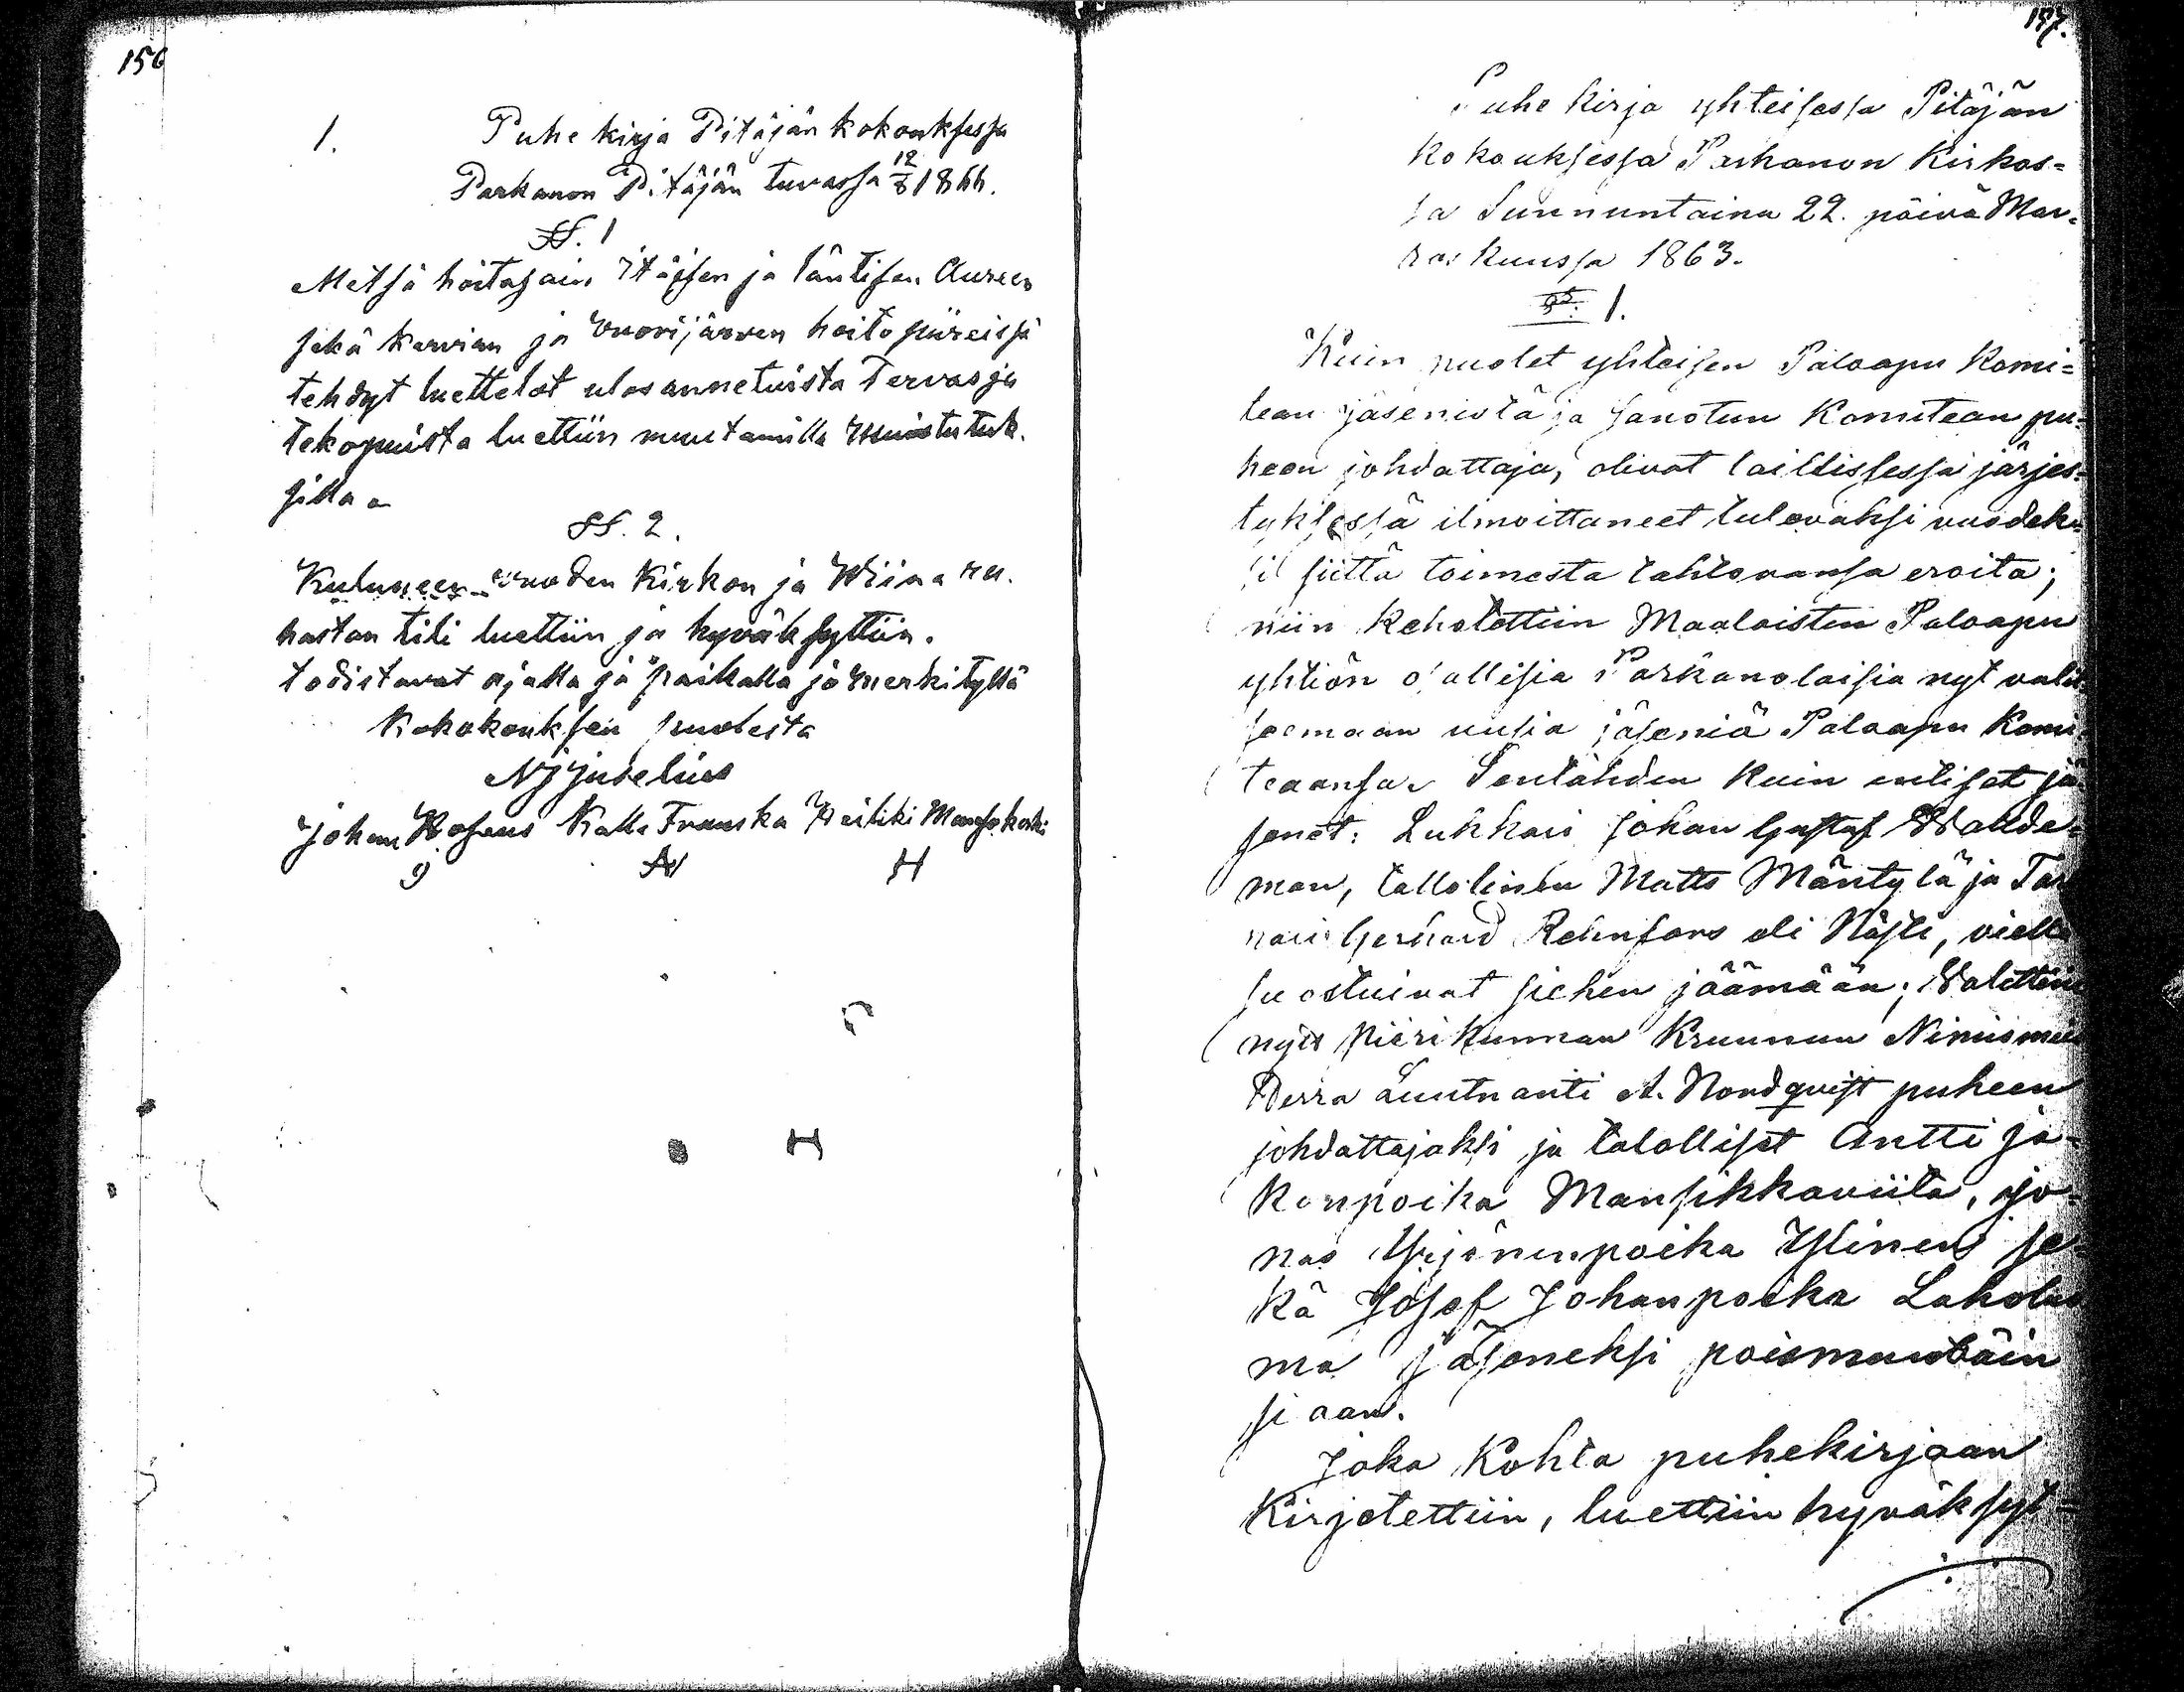 156
1. Puhe kirja Pitäjän kokouksessa
Parkanon Pitäjän tuvassa 12/8 1866.
§§. 1
Metsä hoitajain itäisen ja läntisen Aureen
sekä Karvian ja Vuorijärven hoito piireissä
tehdyt luettelot ulosannetuista Tervas ja
tekopuista luettiin muutamilla muistutuk.
silla
§§. 2.
Kuluneen vuoden Kirkon ja Wiina ra.
hastan tili luettiin ja hyväksyttiin.
todistavat ajalla ja paikalla ja merkityllä
Kokokouksen puolesta
Juselius
Johan Kalle Franska Heikki Mansokoski
157.
Puhe kirja yhteisessa Pitäjän
kokouksessa Parkanon Kirkos=
sa Sunnuntaina 22. päivä Mar=
raskuussa 1863.
§§. 1.
Kuin puolet yhteisen Paloapu Komi=
tean jäsenistä ja sanotun Komitean pu=
heen johdattaja, olivat laillisessa järjes=
tyksessä ilmoittaneet tulevaksi vuodek=
si siittä toimesta tahtovansa eroita;
niin kehotettiin Maalaisten Paloapu
yhtiön osallisia Parkanolaisia nyt valit
semaan uusia jäseniä Paloapu Komi
teaansa. Sentähden kuin entiset jä
senet: Lukkari Johan Gustaf Wallde=
man, tallolinen Matts Mäntylä ja Tor
pari Gerhard Rehnfors eli Näsli, viellä
suostuivat siehen jäämään; Walittiin
nyt Piirikunnan Kruunun Nimismies
Herra Luutnanti A. Nordqvist puheen
johdattajaksi ja talolliset Antti Ja=
konpoika Mansikkaviita, Jo=
nas Yrjönenpoika Ylinen se=
kä Josef Johanpoika Laholuo
ma jäseneksi poismuutväin
siaan.
Joka Kohta puhekirjaan
Kirjotettiin, luettiin hyväksyt=